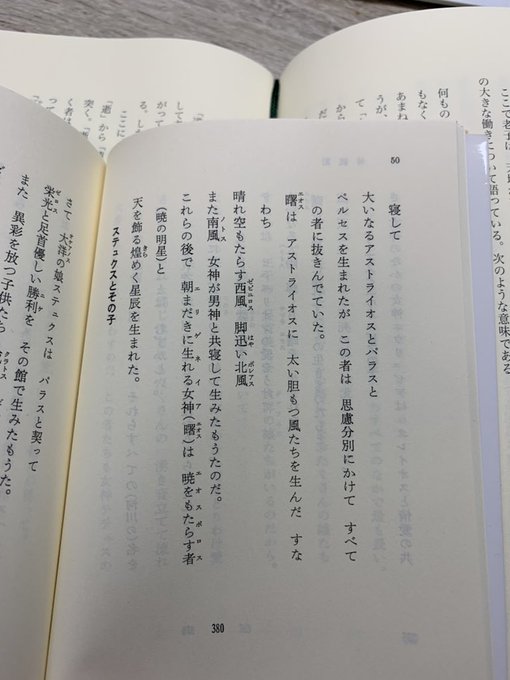 の大きな働きについて語っている。次のような意味である
何もの
もなく
あまね
うが、
から
50
寝して
大いなるアストライオスとパラスと
ペルセスを生まれたが この者は 思慮分別にかけて すべて
の者に抜きんでていた。
エオス
曙は アストライオスに 太い胆もつ風たちを生んだ すな
わち
ゼピュロス はや ボレアス
晴れ空もたらす西風 脚迅い北風
ノトス
また南風、女神が男神と共寝して生みたもうたのだ。
エリゲネイア エオス エオスポロス
これらの後で 朝まだきに生れる女神(曙)は 暁をもたらす者
(暁の明星)と
きら
天を飾る煌めく星辰を生まれた。
ステュクスとその子
オケアノス
さて 大洋の娘ステュクスは パラスと契って
ゼロス ニケ
栄光と足首優しい勝利を その館で生みたもうた。
また 異彩を放つ子供たち
クラトス
380